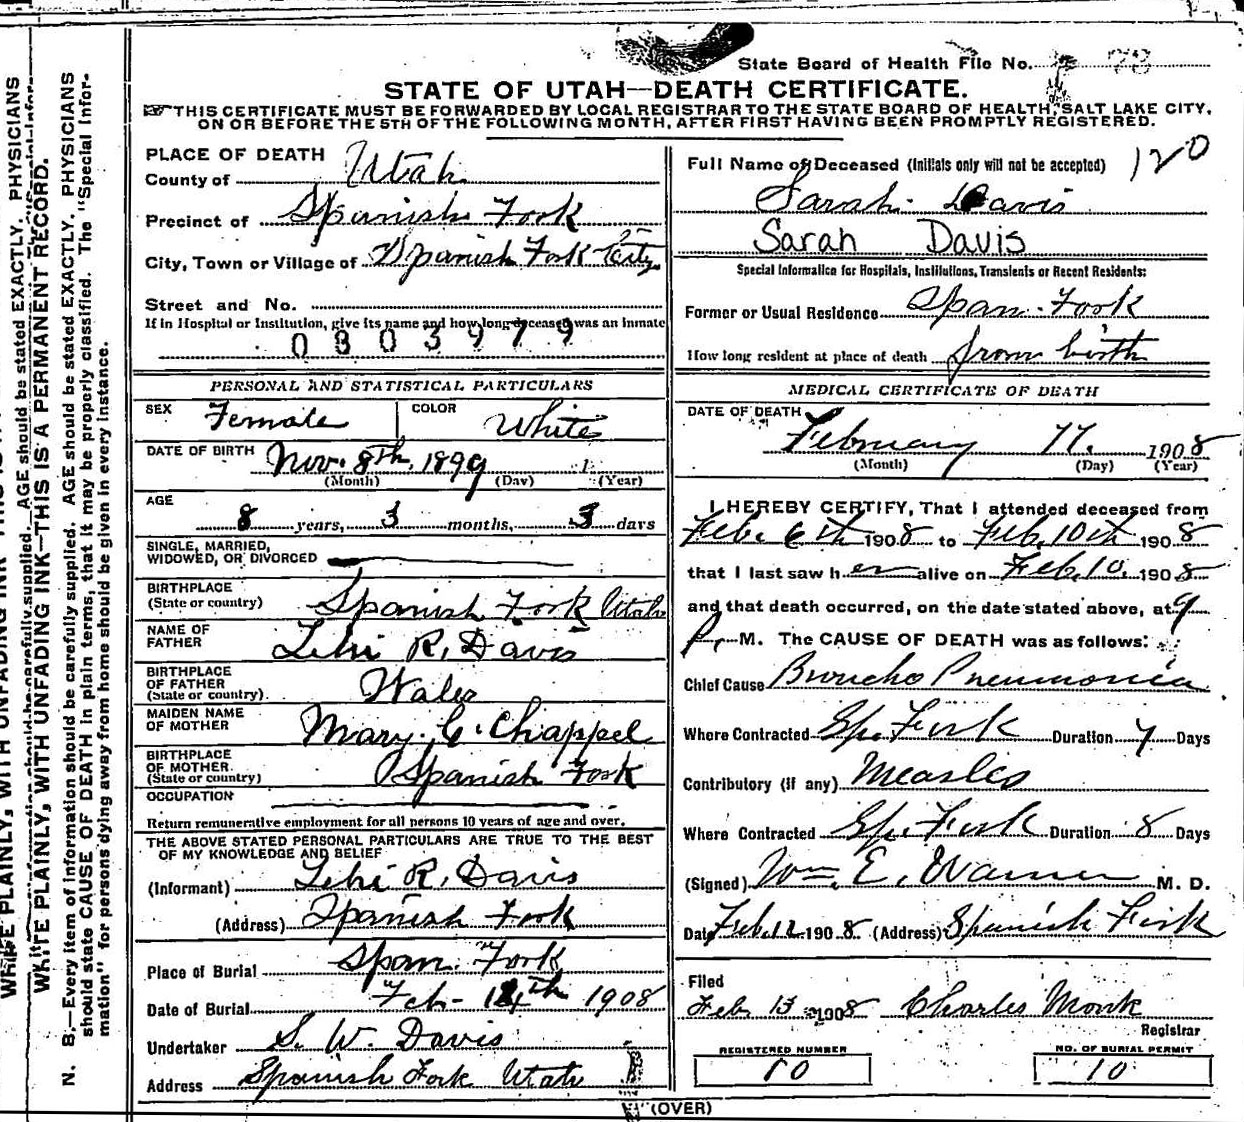 State Board of Health File No.
STATE OF UTAH—DEATH CERTIFICATE.
THIS CERTIFICATE MUST BE FORWARDED BY LOCAL REGISTRAR TO THE STATE BOARD OF HEALTH, SALT LAKE CITY,
ON OR BEFORE THE 5TH OF THE FOLLOWING MONTH, AFTER FIRST HAVING BEEN PROMPTLY REGISTERED.
PLACE OF DEATH
County of Utah
Precinct of Spanish Fork
City, Town or Village of Spanish Fork City
Street and No.
If in Hospital or Institution, give its name and how long deceased was an inmate
0803979
PERSONAL AND STATISTICAL PARTICULARS
SEX Female COLOR White
DATE OF BIRTH Nov. 8th, 1899 1
(Month) (Day) (Year)
AGE
8 years, 3 months, 3 days
SINGLE, MARRIED,
WIDOWED, OR DIVORCED
BIRTHPLACE
(State or country) Spanish Fork Utah
NAME OF
FATHER Lehi R. Davis
BIRTHPLACE
OF FATHER
(State or country). Wales
MAIDEN NAME
OF MOTHER Mary C. Chappel
BIRTHPLACE
OF MOTHER.
(State or country) Spanish Fork
OCCUPATION
Return remunerative employment for all persons 10 years of age and over.
THE ABOVE STATED PERSONAL PARTICULARS ARE TRUE TO THE BEST
OF MY KNOWLEDGE AND BELIEF
(Informant) Lehi R. Davis
(Address) Spanish Fork
Place of Burial Span. Fork
Date of Burial Feb- 14th 1908
Undertaker S. W. Davis
Address Spanish Fork Utah
Full Name of Deceased (Initials only will not be accepted) 120
Sarah Davis
Sarah Davis
Special Information for Hospitals, Institutions, Transients or Recent Residents:
Former or Usual Residence Span. Fork
How long resident at place of death from birth
MEDICAL CERTIFICATE OF DEATH
DATE OF DEATH
February 11. 1908
(Month) (Day) (Year)
I HEREBY CERTIFY, That I attended deceased from
Feb. 6th 1908 to Feb. 10th 1908
that I last saw her alive on Feb. 10. 1908
and that death occurred, on the date stated above, at 9
P. M. The CAUSE OF DEATH was as follows:
Chief Cause Broncho Pneumonia
Where Contracted Sp. Fork Duration 7 Days
Contributory (if any) Measles
Where Contracted Sp. Fork Duration 8 Days
(Signed) Wm. E. Warner M. D.
Date Feb. 12 1908 (Address) Spanish Fork
Filed
Feb 13 1908 Charles Monk
Registrar
REGISTERED NUMBER
10
NO. OF BURIAL PERMIT
10
(OVER)
WRITE PLAINLY, WITH UNFADING INK—THIS IS A PERMANENT RECORD.
N. B.—Every item of information should be carefully supplied. AGE should be stated EXACTLY. PHYSICIANS
should state CAUSE OF DEATH in plain terms, that it may be properly classified. The "Special Infor-
mation" for persons dying away from home should be given in every instance.